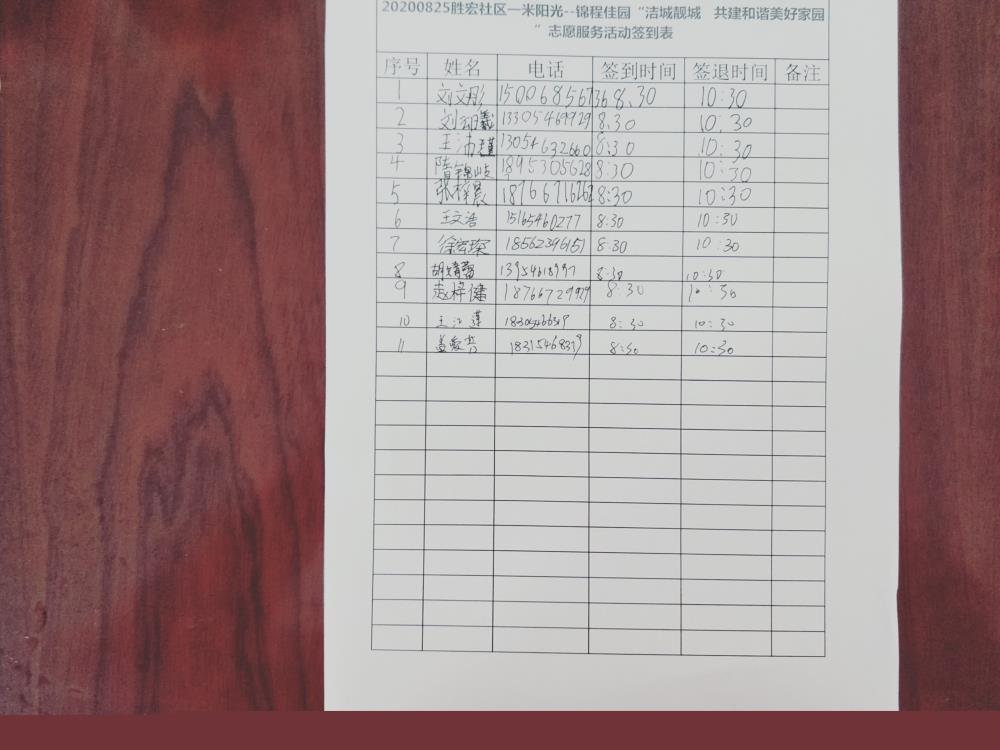 20200825胜宏社区一米阳光--锦程佳园“洁城靓城 共建和谐美好家园
”志愿服务活动签到表
序号 姓名 电话 签到时间 签退时间 备注
1 刘文彤 15006856736 8.30 10:30
2 13305469929 8.30 10.30
3 王沛瑾 13054632660 8:30 10:30
4 隋锦岐 1895305628 8:30 10:30
5 张梓晨 8:30 10:30
6 王文浩 15165460277 8:30 10:30
7 徐宏琛 18562396151 8:30 10:30
8 8:30 10:30
9 赵梓健 18766729929 8:30 10:30
10 8:30 10:30
11 盖爱芳 8:30 10:30